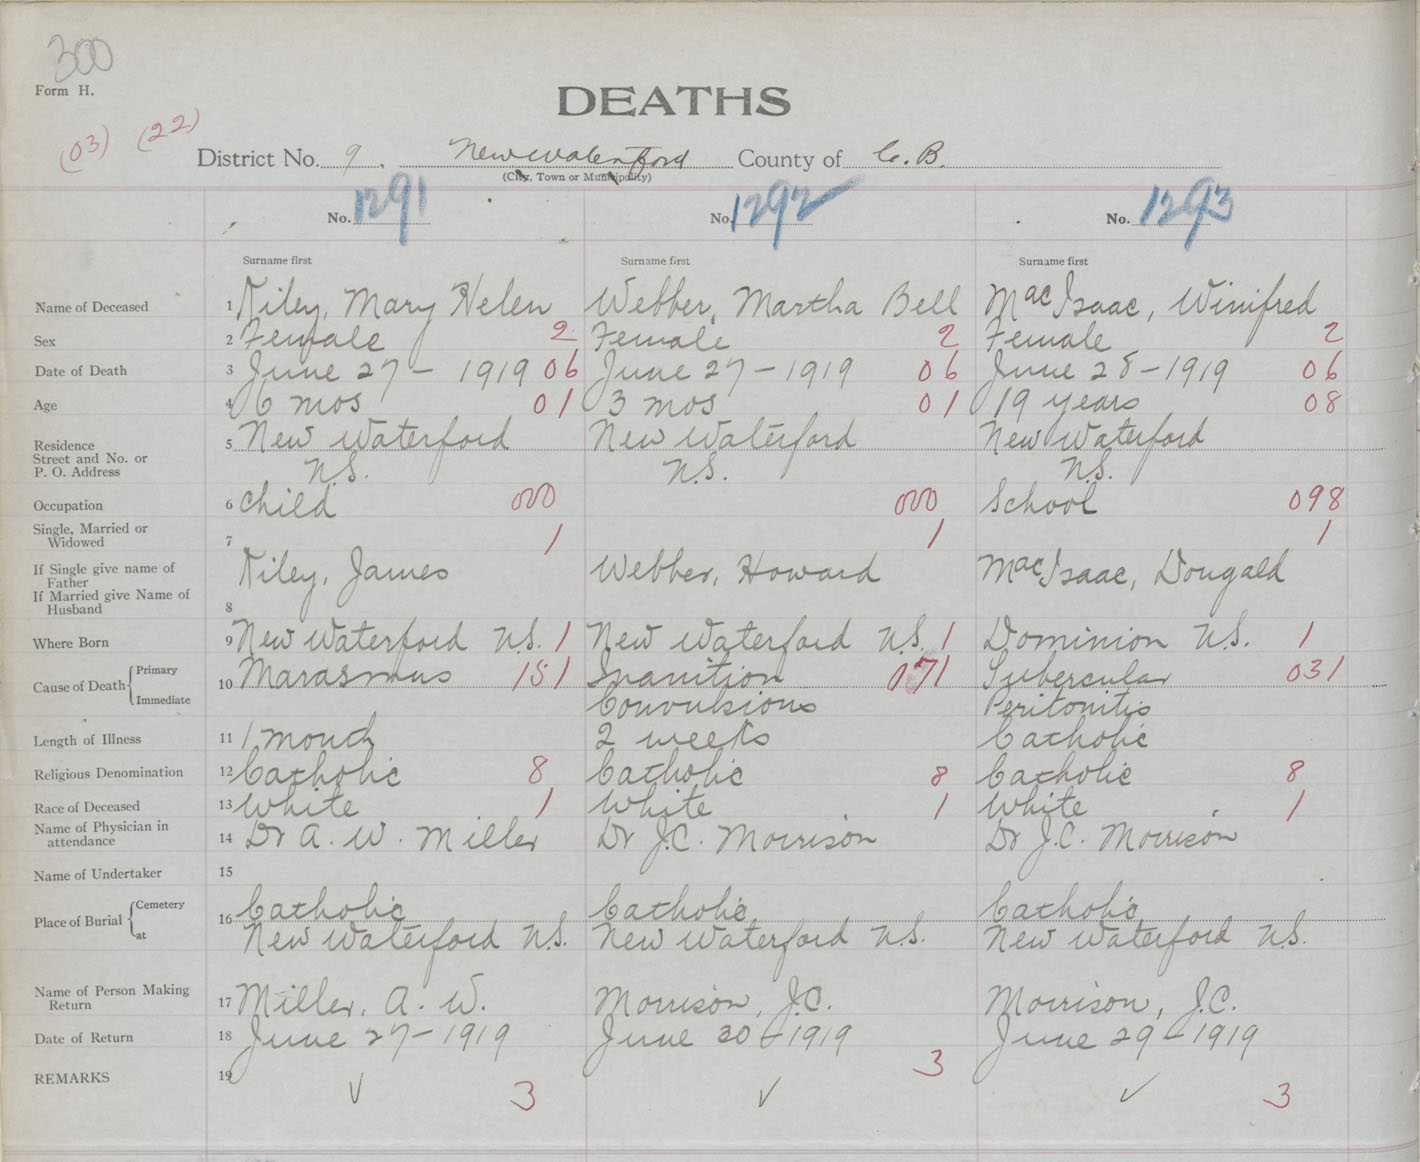 300
Form H.
DEATHS
(03) (22)
District No. 9. New Waterford County of C. B.
(City, Town or Municipality)
No. 1291 No. 1292 No. 1293
Surname first Surname first Surname first
Name of Deceased 1 Riley, Mary Helen Webber, Martha Bell MacIsaac, Winifred
Sex 2 Female 2 Female 2 Female 2
Date of Death 3 June 27 - 1919 06 June 27 - 1919 06 June 28 - 1919 06
Age 4 6 mos 01 3 mos 01 19 years 08
Residence 5 New Waterford New Waterford New Waterford
Street and No. or
P. O. Address N.S. N.S. N.S.
Occupation 6 Child 000 000 School 098
Single, Married or
Widowed 7 1 1 1
If Single give name of Riley, James Webber, Howard MacIsaac, Dougald
Father
If Married give Name of
Husband 8
Where Born 9 New Waterford N.S. 1 New Waterford N.S. 1 Dominion N.S. 1
Cause of Death Primary 10 Marasmus 151 Inanition 071 Tubercular 031
Immediate Convulsions Peritonitis
Length of Illness 11 1 month 2 weeks Catholic
Religious Denomination 12 Catholic 8 Catholic 8 Catholic 8
Race of Deceased 13 White 1 White 1 White 1
Name of Physician in
attendance 14 Dr A. W. Miller Dr J.C. Morrison Dr J.C. Morrison
Name of Undertaker 15
Place of Burial Cemetery 16 Catholic Catholic Catholic
at New Waterford N.S. New Waterford N.S. New Waterford N.S.
Name of Person Making
Return 17 Miller, A. W. Morrison, J.C. Morrison, J.C.
Date of Return 18 June 27 - 1919 June 30 - 1919 June 29 - 1919
REMARKS 19 3 3 3